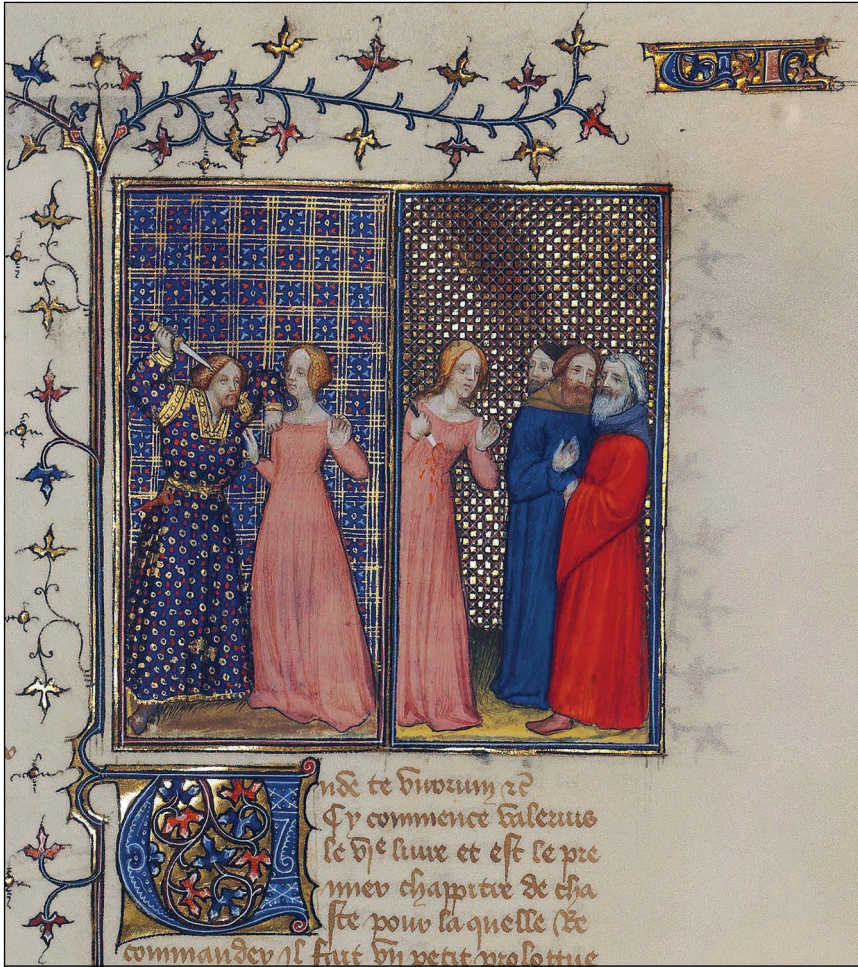 nde te virorum ⁊c̄
Cy commence valerius
le vje liure et est le pre
mier chappitre de cha
ste pour la quelle Re
commander il fait vn petit prologue